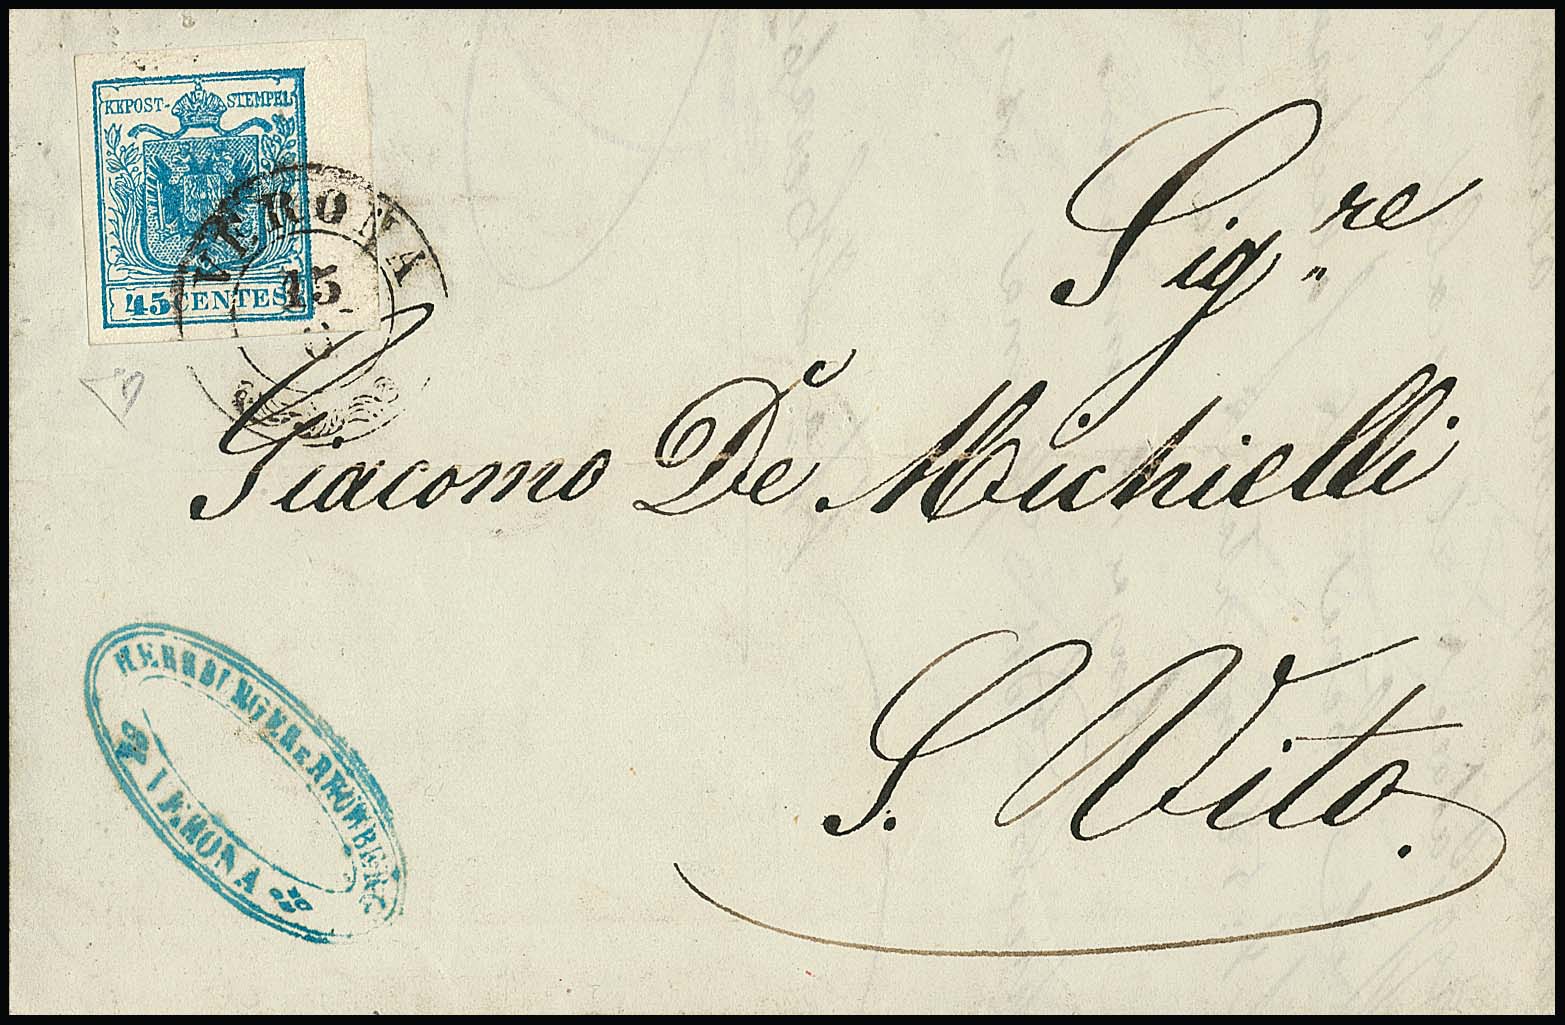 KKPOST-STEMPEL
45 CENTES.
VERONA
15
Sig.re
Giacomo De Michielli
S. Vito.
VERONA